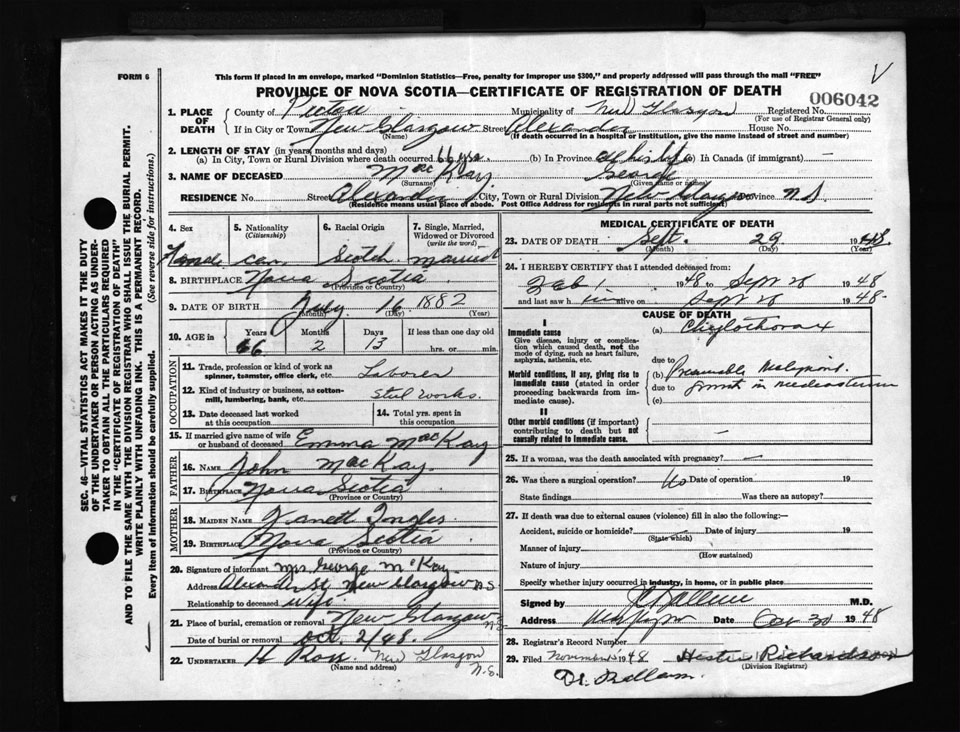 FORM 6
This form if placed in an envelope, marked "Dominion Statistics—Free, penalty for improper use $300," and properly addressed will pass through the mail "FREE"
PROVINCE OF NOVA SCOTIA—CERTIFICATE OF REGISTRATION OF DEATH
006042
1. PLACE OF DEATH
County of Pictou Municipality of New Glasgow Registered No.
(For use of Registrar General only)
If in City or Town New Glasgow Street Alexander House No.
(Name) (If death occurred in a hospital or institution, give its name instead of street and number)
2. LENGTH OF STAY (in years, months and days)
(a) In City, Town or Rural Division where death occurred (b) In Province all his life (c) In Canada (if immigrant) —
3. NAME OF DECEASED MacKay George
(Surname) (Given name or names)
RESIDENCE No. Street Alexander City, Town or Rural Division New Glasgow Province N.S.
(Residence means usual place of abode. Post Office Address for residents in rural parts not sufficient)
4. Sex
5. Nationality (Citizenship)
6. Racial Origin
7. Single, Married, Widowed or Divorced (write the word)
Can. Scotch married
8. BIRTHPLACE Nova Scotia
(Province or Country)
9. DATE OF BIRTH July 16 1882
(Month) (Day) (Year)
10. AGE in Years Months Days If less than one day old
66 2 13 hrs. or min.
OCCUPATION
11. Trade, profession or kind of work as spinner, teamster, office clerk, etc. Laborer
12. Kind of industry or business, as cotton-mill, lumbering, bank, etc. Steel Works.
13. Date deceased last worked at this occupation
14. Total yrs. spent in this occupation
15. If married give name of wife or husband of deceased Emma MacKay
FATHER
16. NAME John MacKay.
17. BIRTHPLACE Nova Scotia
(Province or Country)
MOTHER
18. MAIDEN NAME Janett Ingles.
19. BIRTHPLACE Nova Scotia
(Province or Country)
20. Signature of informant Mrs George McKay
Address Alexander St. New Glasgow N.S
Relationship to deceased wife
21. Place of burial, cremation or removal New Glasgow N.S
Date of burial or removal Oct. 2/48.
22. UNDERTAKER H Ross New Glasgow N.S.
(Name and address)
MEDICAL CERTIFICATE OF DEATH
23. DATE OF DEATH Sept. 29 1948
(Month) (Day) (Year)
24. I HEREBY CERTIFY that I attended deceased from:
Feb 1 1948 to Sept 28 1948
and last saw him alive on Sept 28 1948.
CAUSE OF DEATH
I
Immediate cause
Give disease, injury or complication which caused death, not the mode of dying, such as heart failure, asphyxia, asthenia, etc.
(a) Chylothorax
due to
Morbid conditions, if any, giving rise to immediate cause (stated in order proceeding backwards from immediate cause).
(b) Presumable Malignant
due to growth in mediastinum
(c)
II
Other morbid conditions (if important) contributing to death but not causally related to immediate cause.
—
25. If a woman, was the death associated with pregnancy? —
26. Was there a surgical operation? No Date of operation 19
State findings Was there an autopsy?
27. If death was due to external causes (violence) fill in also the following:—
Accident, suicide or homicide? Date of injury 19
(State which)
Manner of injury
(How sustained)
Nature of injury
Specify whether injury occurred in industry, in home, or in public place
Signed by M.D.
Address Date 30 1948
28. Registrar's Record Number
29. Filed November 1948 Richardson
(Division Registrar)
SEC. 46—VITAL STATISTICS ACT MAKES IT THE DUTY
OF THE UNDERTAKER OR PERSON ACTING AS UNDER-
TAKER TO OBTAIN ALL THE PARTICULARS REQUIRED
IN THE "CERTIFICATE OF REGISTRATION OF DEATH"
AND TO FILE THE SAME WITH THE DIVISION REGISTRAR WHO SHALL ISSUE THE BURIAL PERMIT.
WRITE PLAINLY WITH UNFADING INK. THIS IS A PERMANENT RECORD.
Every item of information should be carefully supplied. (See reverse side for instructions.)